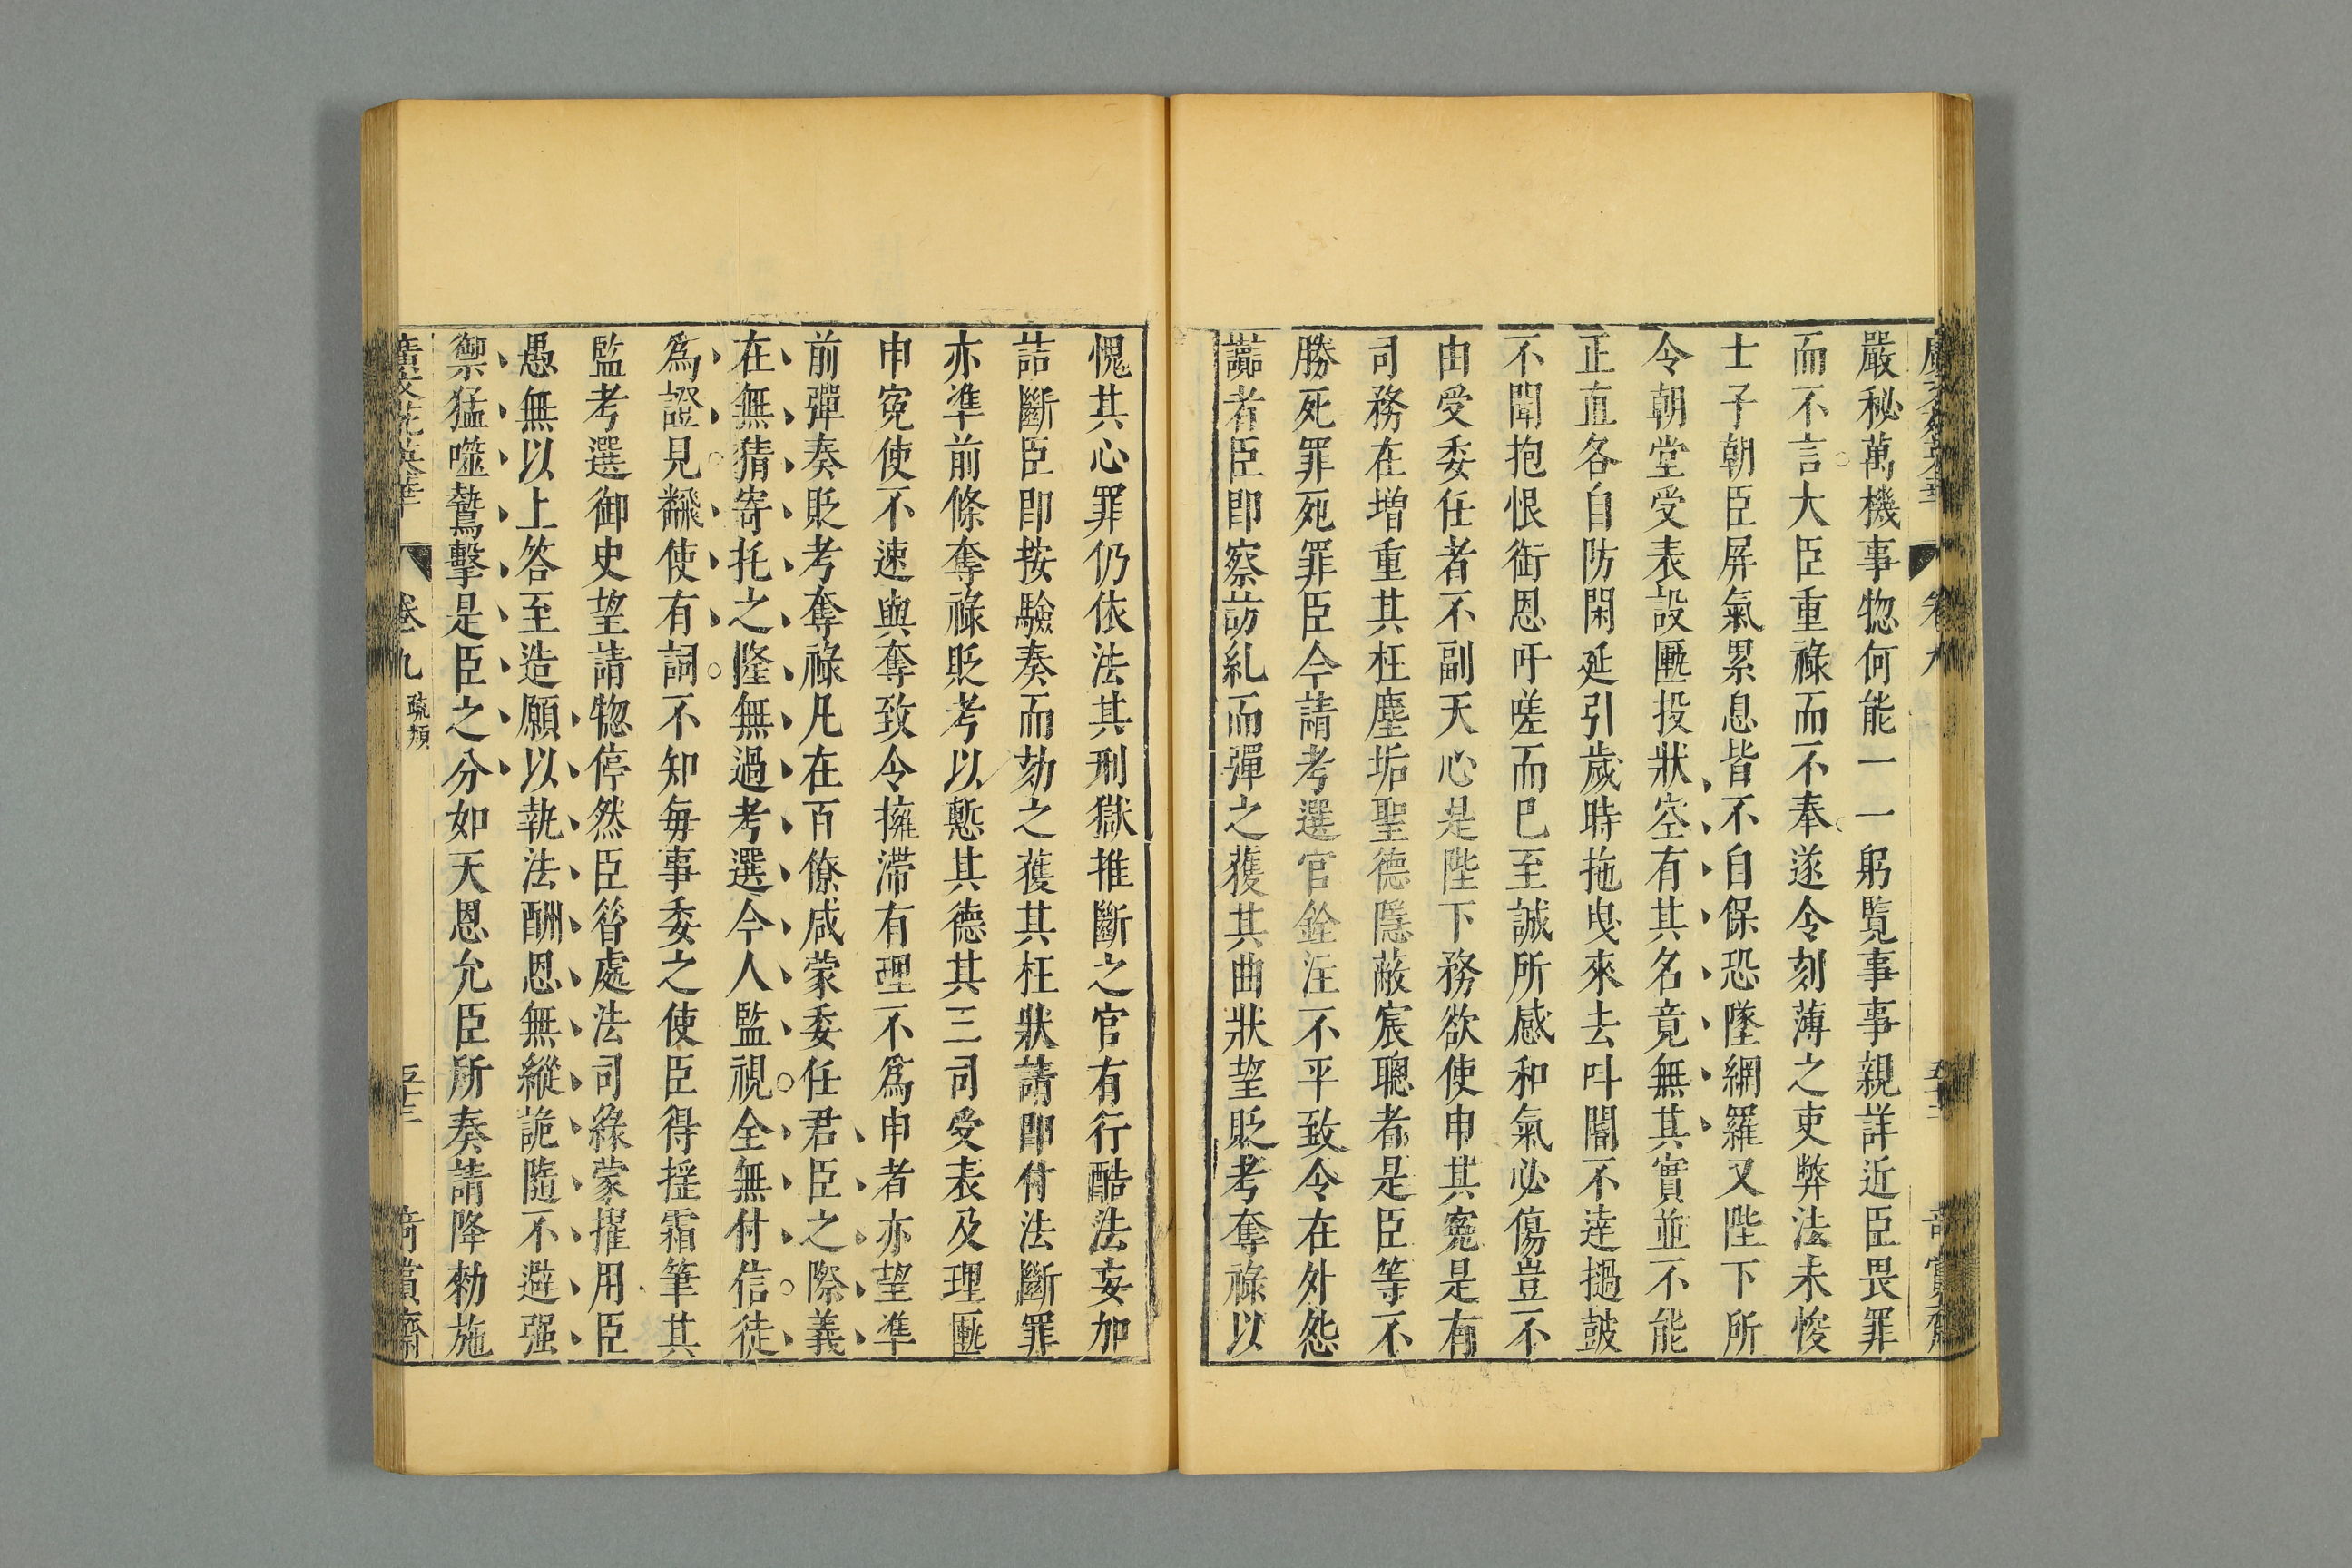 嚴秘萬機事惣何能一一躬覽事事親詳近臣畏罪
而不言大臣重祿而不奉遂令刻薄之吏弊法未悛
士子朝臣屏氣累息皆不自保恐墜網羅又陛下所
令朝堂受表設匭投狀空有其名竟無其實並不能
正直各自防閑延引歲時拖曳來去叫閽不達撾鼓
不聞抱恨銜恩吁嗟而已至誠所感和氣必傷豈不
由受委任者不副天心是陛下務欲使申其寃是有
司務在增重其枉塵垢聖德隱蔽宸聰者是臣等不
勝死罪死罪臣今請考選官銓注不平致令在外怨
讟者臣即察訪糺而彈之獲其曲狀望貶考奪祿以
愧其心罪仍依法其刑獄推斷之官有行酷法妄加
詰斷臣即按驗奏而劾之獲其枉狀請即付法斷罪
亦準前條奪祿貶考以慙其德其三司受表及理匭
申寃使不速與奪致令擁滯有理不爲申者亦望準
前彈奏貶考奪祿凡在百僚咸蒙委任君臣之際義
在無猜寄托之隆無過考選今人監視全無付信徒
爲證見飜使有詞不知每事委之使臣得搖霜筆其
監考選御史望請惣停然臣昝處法司綠蒙擢用臣
愚無以上答至造願以執法酬恩無縱詭隨不避强
禦猛噬鷙擊是臣之分如天恩允臣所奏請降勑施
廣文苑英華 卷九 疏類 五十三 奇賞齋